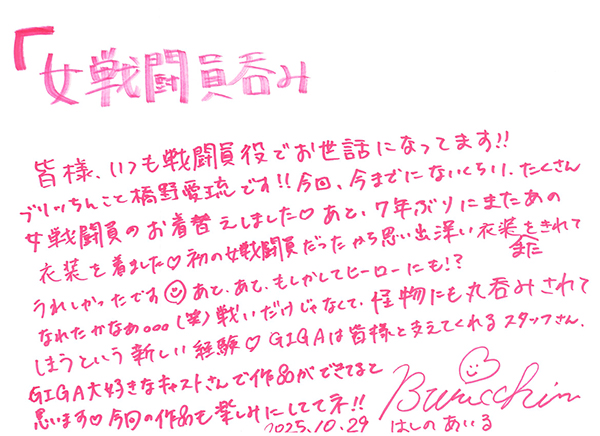 「女戦闘員呑み
皆様、いつも戦闘員役でお世話になってます!!
ブリッちんこと橋野愛琉です!!今回、今までにないくらい、たくさん
女戦闘員のお着替えしました♡あと、7年ぶりにまたあの
衣装を着ました♡初の女戦闘員だったから思い出深い衣装をまたきれて
うれしかったです☺あと、あと、もしかしてヒーローにも!?
なれたかなぁ。。。(笑)戦いだけじゃなくて、怪物にも丸呑みされて
しまうという新しい経験♡GIGAは皆様と支えてくれるスタッフさん、
GIGA大好きなキャストさんで作品ができてると
思います♡今回の作品も楽しみにしててネ!!
Buricchin
2025.10.29 はしのあいる